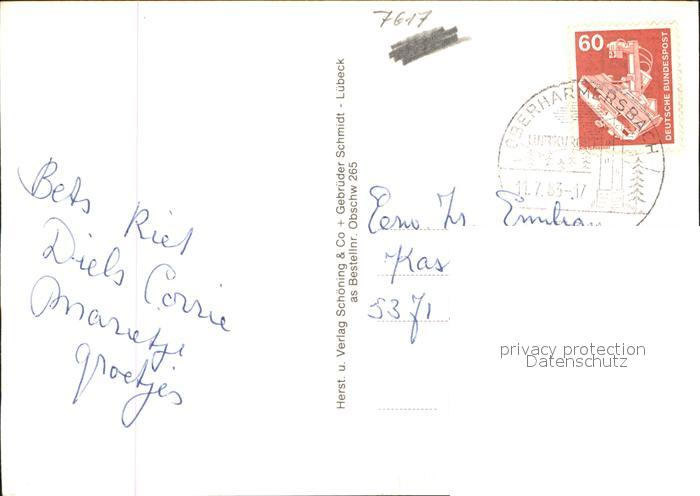 7617
60
DEUTSCHE BUNDESPOST
OBERHARMERSBACH
LUFTKURORT
11.7.83-17
Bets Riet
Diels Corrie
Marietje
groetjes
Herst. u. Verlag Schöning & Co + Gebrüder Schmidt - Lübeck
as Bestellnr. Obschw 265
Eerw. Zr.
Kas
5371
privacy protection
Datenschutz